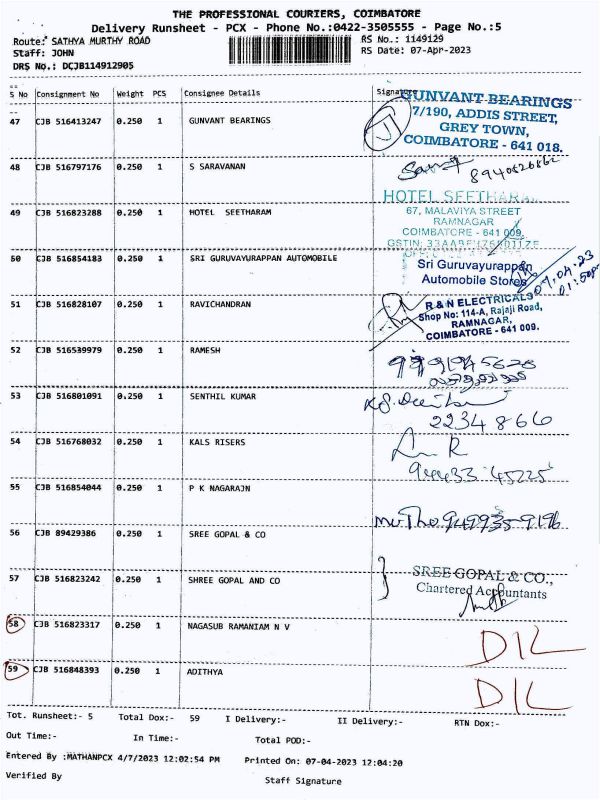 THE PROFESSIONAL COURIERS, COIMBATORE
Delivery Runsheet - PCX - Phone No.:0422-3505555 - Page No.:5
Route: SATHYA MURTHY ROAD RS No.: 1149129
Staff: JOHN RS Date: 07-Apr-2023
DRS No.: DCJB114912905
S No Consignment No Weight PCS Consignee Details Signature
47 CJB 516413247 0.250 1 GUNVANT BEARINGS
GUNVANT BEARINGS
7/190, ADDIS STREET,
GREY TOWN,
COIMBATORE - 641 018.
48 CJB 516797176 0.250 1 S SARAVANAN
49 CJB 516823288 0.250 1 HOTEL SEETHARAM
HOTEL SEETHARAM
67, MALAVIYA STREET
RAMNAGAR
COIMBATORE - 641 009.
50 CJB 516854183 0.250 1 SRI GURUVAYURAPPAN AUTOMOBILE
Sri Guruvayurappan
Automobile Stores
07.04.23
51 CJB 516828107 0.250 1 RAVICHANDRAN
R & N ELECTRICALS
Shop No: 114-A, Rajaji Road,
RAMNAGAR,
COIMBATORE - 641 009.
52 CJB 516539979 0.250 1 RAMESH
53 CJB 516801091 0.250 1 SENTHIL KUMAR
2234866
54 CJB 516768032 0.250 1 KALS RISERS
94433 45225
55 CJB 516854044 0.250 1 P K NAGARAJN
56 CJB 89429386 0.250 1 SREE GOPAL & CO
57 CJB 516823242 0.250 1 SHREE GOPAL AND CO
SREE GOPAL & CO.,
Chartered Accountants
58 CJB 516823317 0.250 1 NAGASUB RAMANIAM N V
D/L
59 CJB 516848393 0.250 1 ADITHYA
D/L
Tot. Runsheet:- 5 Total Dox:- 59 I Delivery:- II Delivery:- RTN Dox:-
Out Time:- In Time:- Total POD:-
Entered By :MATHANPCX 4/7/2023 12:02:54 PM Printed On: 07-04-2023 12:04:20
Verified By Staff Signature